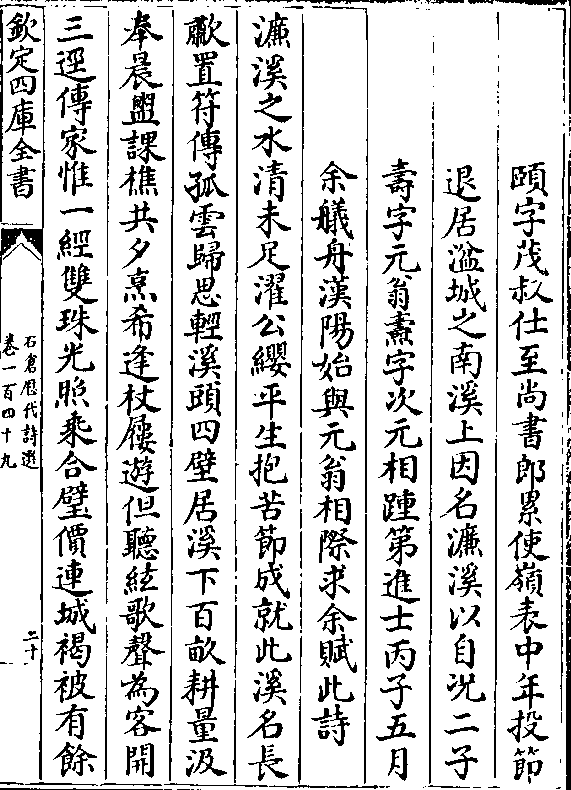 頥字茂叔仕至尚書郎累使嶺表中年投節
退居湓城之南溪上因名濂溪以自况二子
壽字元翁燾字次元相踵第進士丙子五月
余艤舟漢陽始與元翁相際求余賦此詩
濂溪之水清未足濯公纓平生抱苦節成就此溪名長
歗置符傳孤雲歸思輕溪頭四壁居溪下百畝耕量汲
奉晨盥課樵共夕烹希逢杖屨遊但聽絃歌聲為客開
三逕傳家惟一經雙珠光照乘合璧價連城褐被有餘
欽定四庫全書
石倉歴代詩選
卷一百四十九
二十